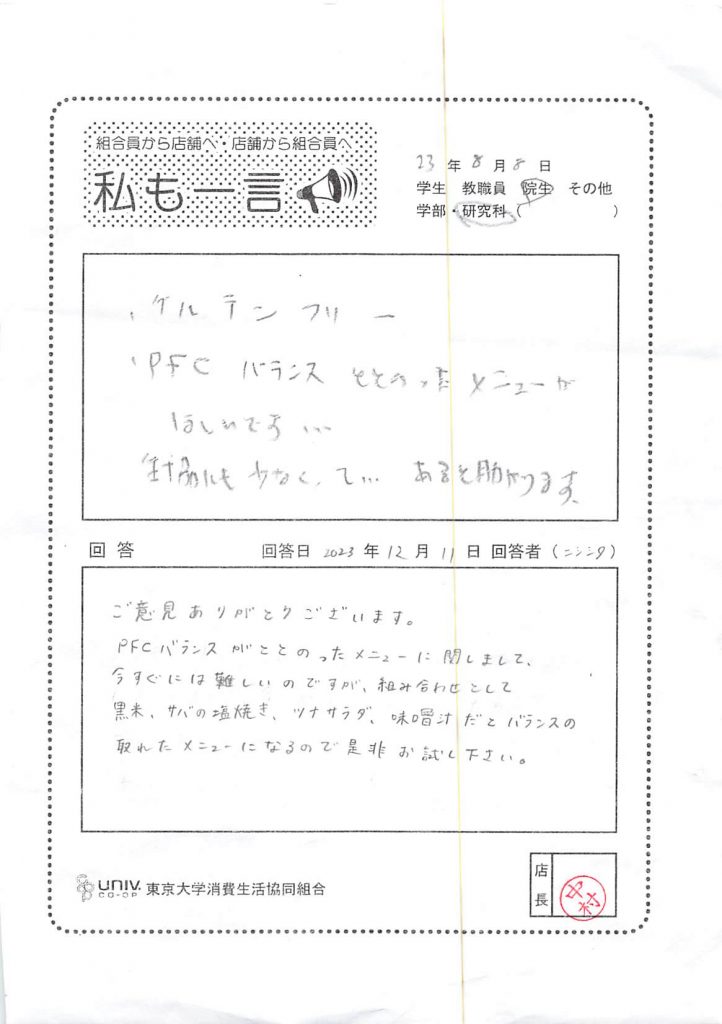 組合員から店舗へ・店舗から組合員へ
私も一言
23年8月8日
学生 教職員 院生 その他
学部・研究科( )
・グルテンフリー
・PFCバランスととのったメニューが
ほしいです…
生協にも少なくって… あると助かります。
回答 回答日 2023年12月11日 回答者(ニシンタ)
ご意見ありがとうございます。
PFCバランスがととのったメニューに関しまして、
今すぐには難しいのですが、組み合わせとして
黒米、サバの塩焼き、ツナサラダ、味噌汁だとバランスの
取れたメニューになるので是非お試し下さい。
UNIV. CO-OP 東京大学消費生活協同組合
店長 中村